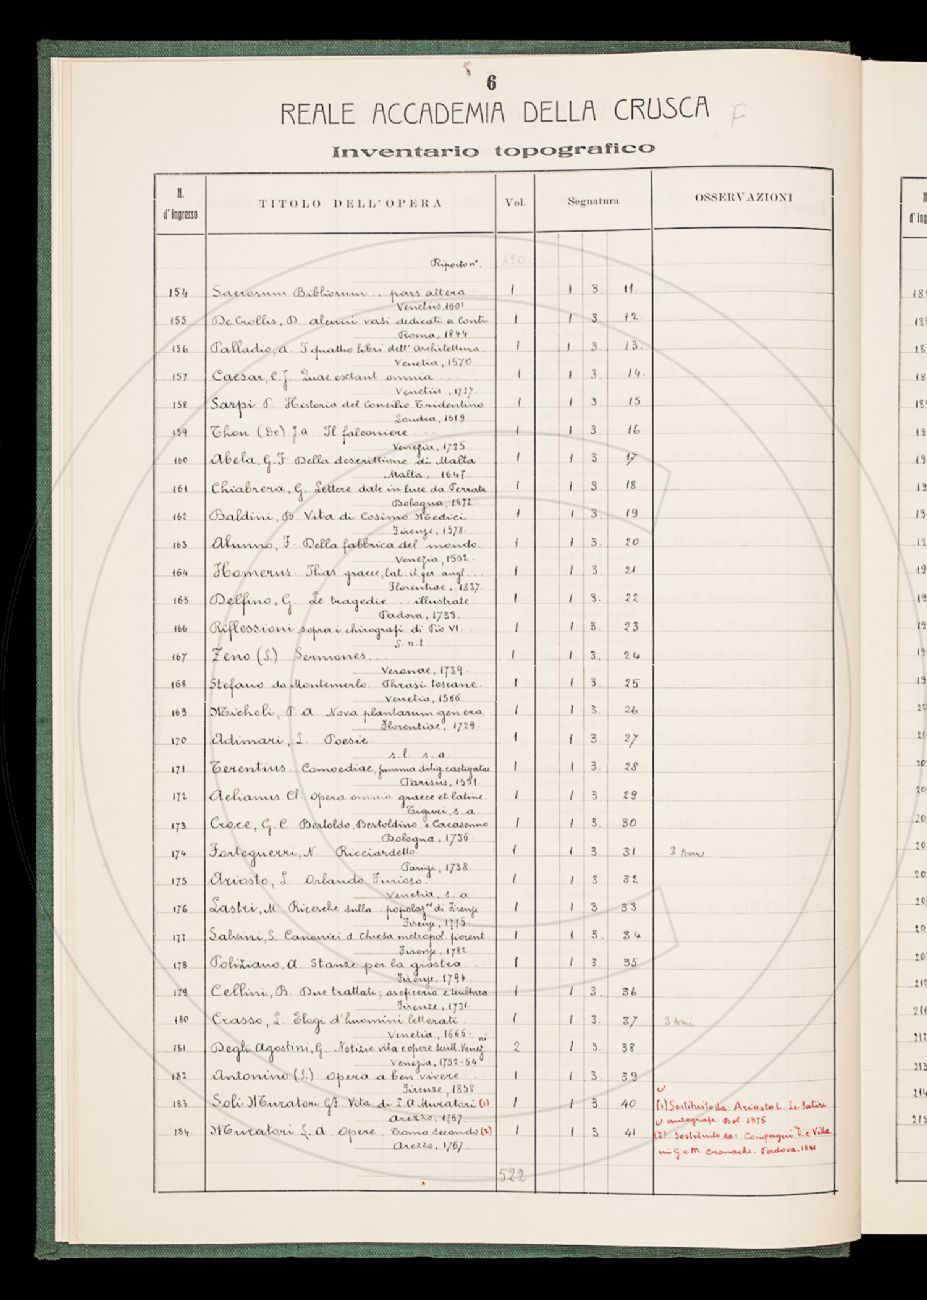 6
REALE ACCADEMIA DELLA CRUSCA F
Inventario topografico
N. d'Ingresso TITOLO DELL'OPERA Vol. Segnatura OSSERVAZIONI
Riporto nº. 490
154 Sacrorum Bibliorum .. pars altera 1 1 3 11
Venetiis, 1601
155 De Crollis, D. alcuni versi dedicati a Conti 1 1 3 12
Roma, 1844
156 Palladio, A. I quattro libri dell'Architettura 1 1 3 13
Venetia, 1570
157 Caesar, C. J. Quae extant omnia .... 1 1 3 14
Venetiis, 1737
158 Sarpi P. Historia del Concilio Tridentino 1 1 3 15
Londra, 1619
159 Thou (De) J. A. Il falconiere .. 1 1 3 16
Venezia, 1735
160 Abela, G. F. Della descrittione di Malta 1 1 3 17
Malta, 1647
161 Chiabrera, G. Lettere date in luce da Ferrata 1 1 3 18
Bologna, 1872
162 Baldini, B. Vita di Cosimo Medici 1 1 3 19
Firenze, 1578
163 Alunno, F. Della fabbrica del mondo. 1 1 3 20
Venezia, 1562
164 Homerus Ilias graece, lat. it. ger. angl. ... 1 1 3 21
Florentiae, 1837
165 Delfino, G. Le tragedie ... illustrate 1 1 3 22
Padova, 1733
166 Riflessioni sopra i chirografi di Pio VI ... 1 1 3 23
s. n. t.
167 Zeno (S.) Sermones ... 1 1 3 24
Veronae, 1739
168 Stefano da Montemerlo. Phrasi toscane. 1 1 3 25
Venetia, 1566
169 Micheli, P. A. Nova plantarum genera 1 1 3 26
Florentiae, 1729
170 Adimari, L. Poesie 1 1 3 27
s. l. s. a.
171 Terentius. Comoediae, summa dilig. castigatae 1 1 3 28
Parisiis, 1551
172 Aelianus Cl. opera omnia graece et latine 1 1 3 29
Tiguri, s. a.
173 Croce, G. C. Bertoldo, Bertoldino e Cacasenno 1 1 3 30
Bologna, 1736
174 Forteguerri, N. Ricciardetto. 1 1 3 31 2 tomi
Parigi, 1738
175 Ariosto, L. Orlando Furioso. 1 1 3 32
Venetia, s. a.
176 Lastri, M. Ricerche sulla popolaz.ne di Firenze 1 1 3 33
Firenze, 1775
177 Salvini, S. Canonici d. Chiesa metropol. fiorent. 1 1 3 34
Firenze, 1782
178 Poliziano, A. Stanze per la giostra ... 1 1 3 35
Firenze, 1794
179 Cellini, B. Due trattati; oreficeria e scultura 1 1 3 36
Firenze, 1731
180 Crasso, L. Elogi d'huomini letterati. 1 1 3 37 2 tomi
Venetia, 1666
181 Degli Agostini, G. Notizie vita e opere scritt. Venezni 2 1 3 38
Venezia, 1752-54
182 Antonino (S.) Opera a ben vivere 1 1 3 39
Firenze, 1858
183 Soli Muratori G. F. Vita di L. A. Muratori (1) 1 1 3 40 (1) Sostituito da: Ariosto L. Le Satire
Arezzo, 1767 autografe Bol. 1875
184 Muratori L. A. Opere Tomo secondo (2) 1 1 3 41 (2) Sostituito da: Compagni D. e Villa
Arezzo, 1767 ni G. e M. Cronache. Padova, 1841
522